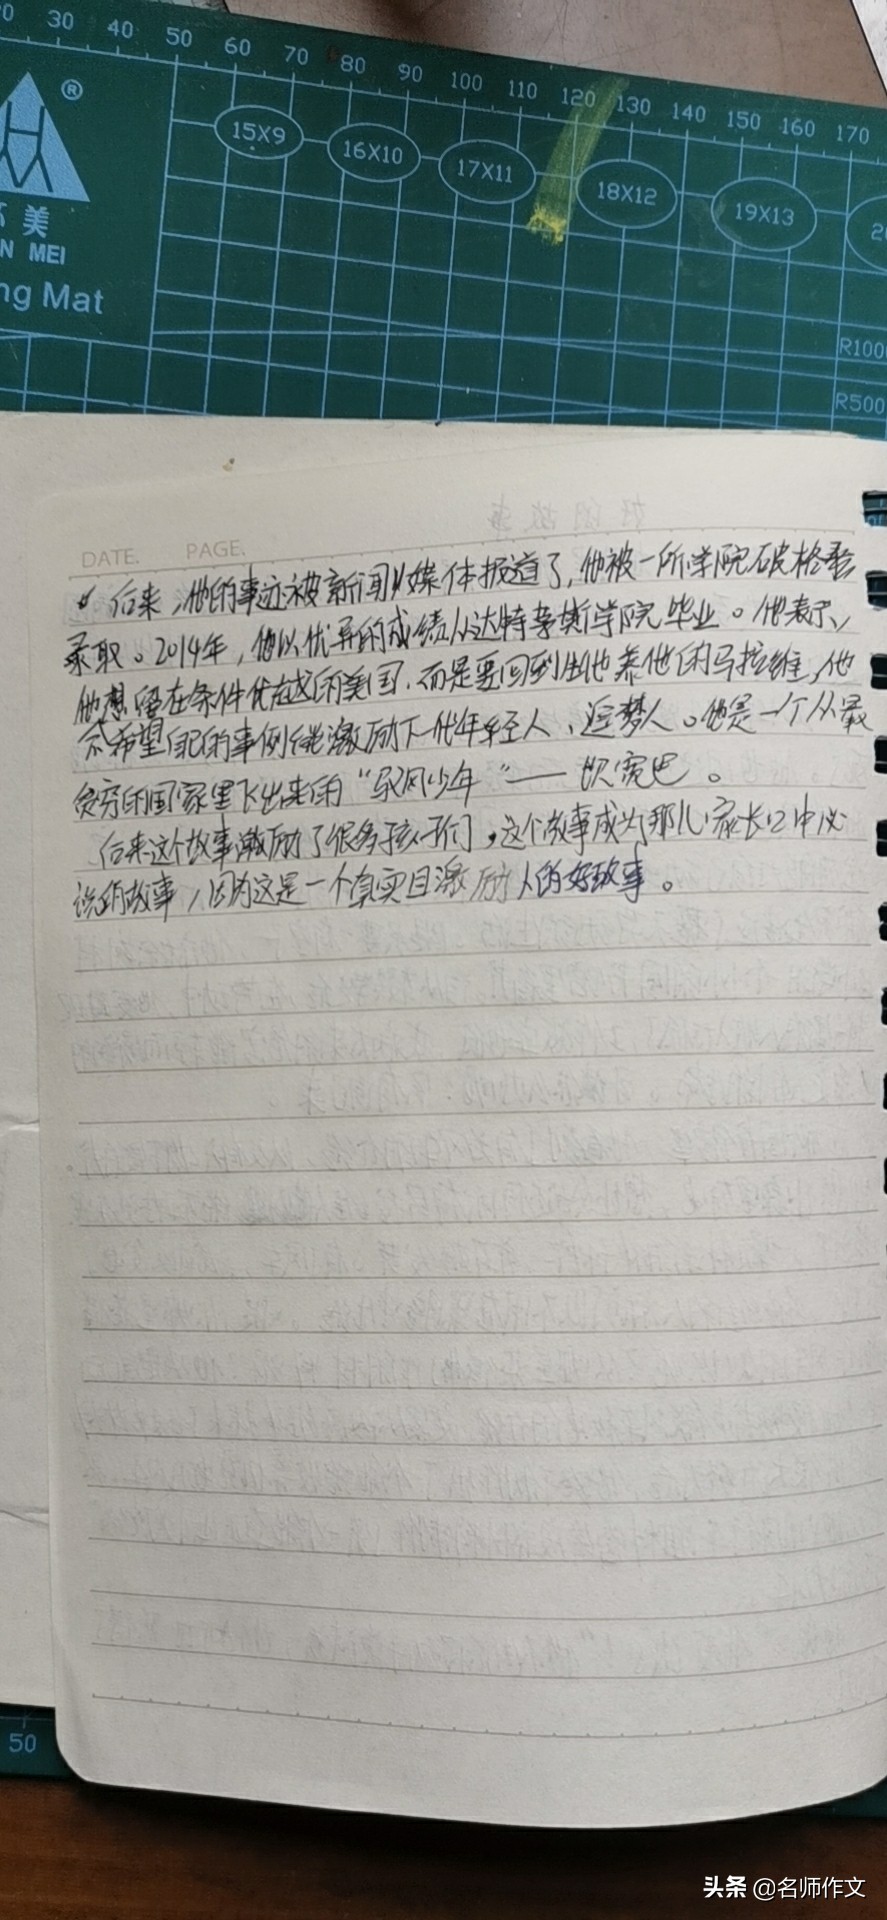 30 40 50 60 70 80 90 100 110 120 130 140 150 160 170
15X9 16X10 17X11 18X12 19X13
®
美
N MEI
ng Mat
R1000
R500
DATE. PAGE.
后来，他的事迹被新闻媒体报道了，他被一所学院破格
录取。2014年，他以优异的成绩从达特茅斯学院毕业。他表示，
他想留在条件优越的美国，而是要回到生他养他的马拉维，他
希望自己的事例能激励下一代年轻人、追梦人。他是一个从最
贫穷的国家里飞出来的“驭风少年”——坎宽巴。
后来这个故事激励了很多孩子们，这个故事成为那儿家长口中必
说的故事，因为这是一个真实且激励人的好故事。
50
头条 @名师作文